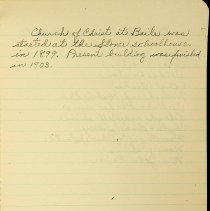 Church of Christ at Baile was
started at the Stone schoolhouse
in 1899. Present building was finished
in 1908.